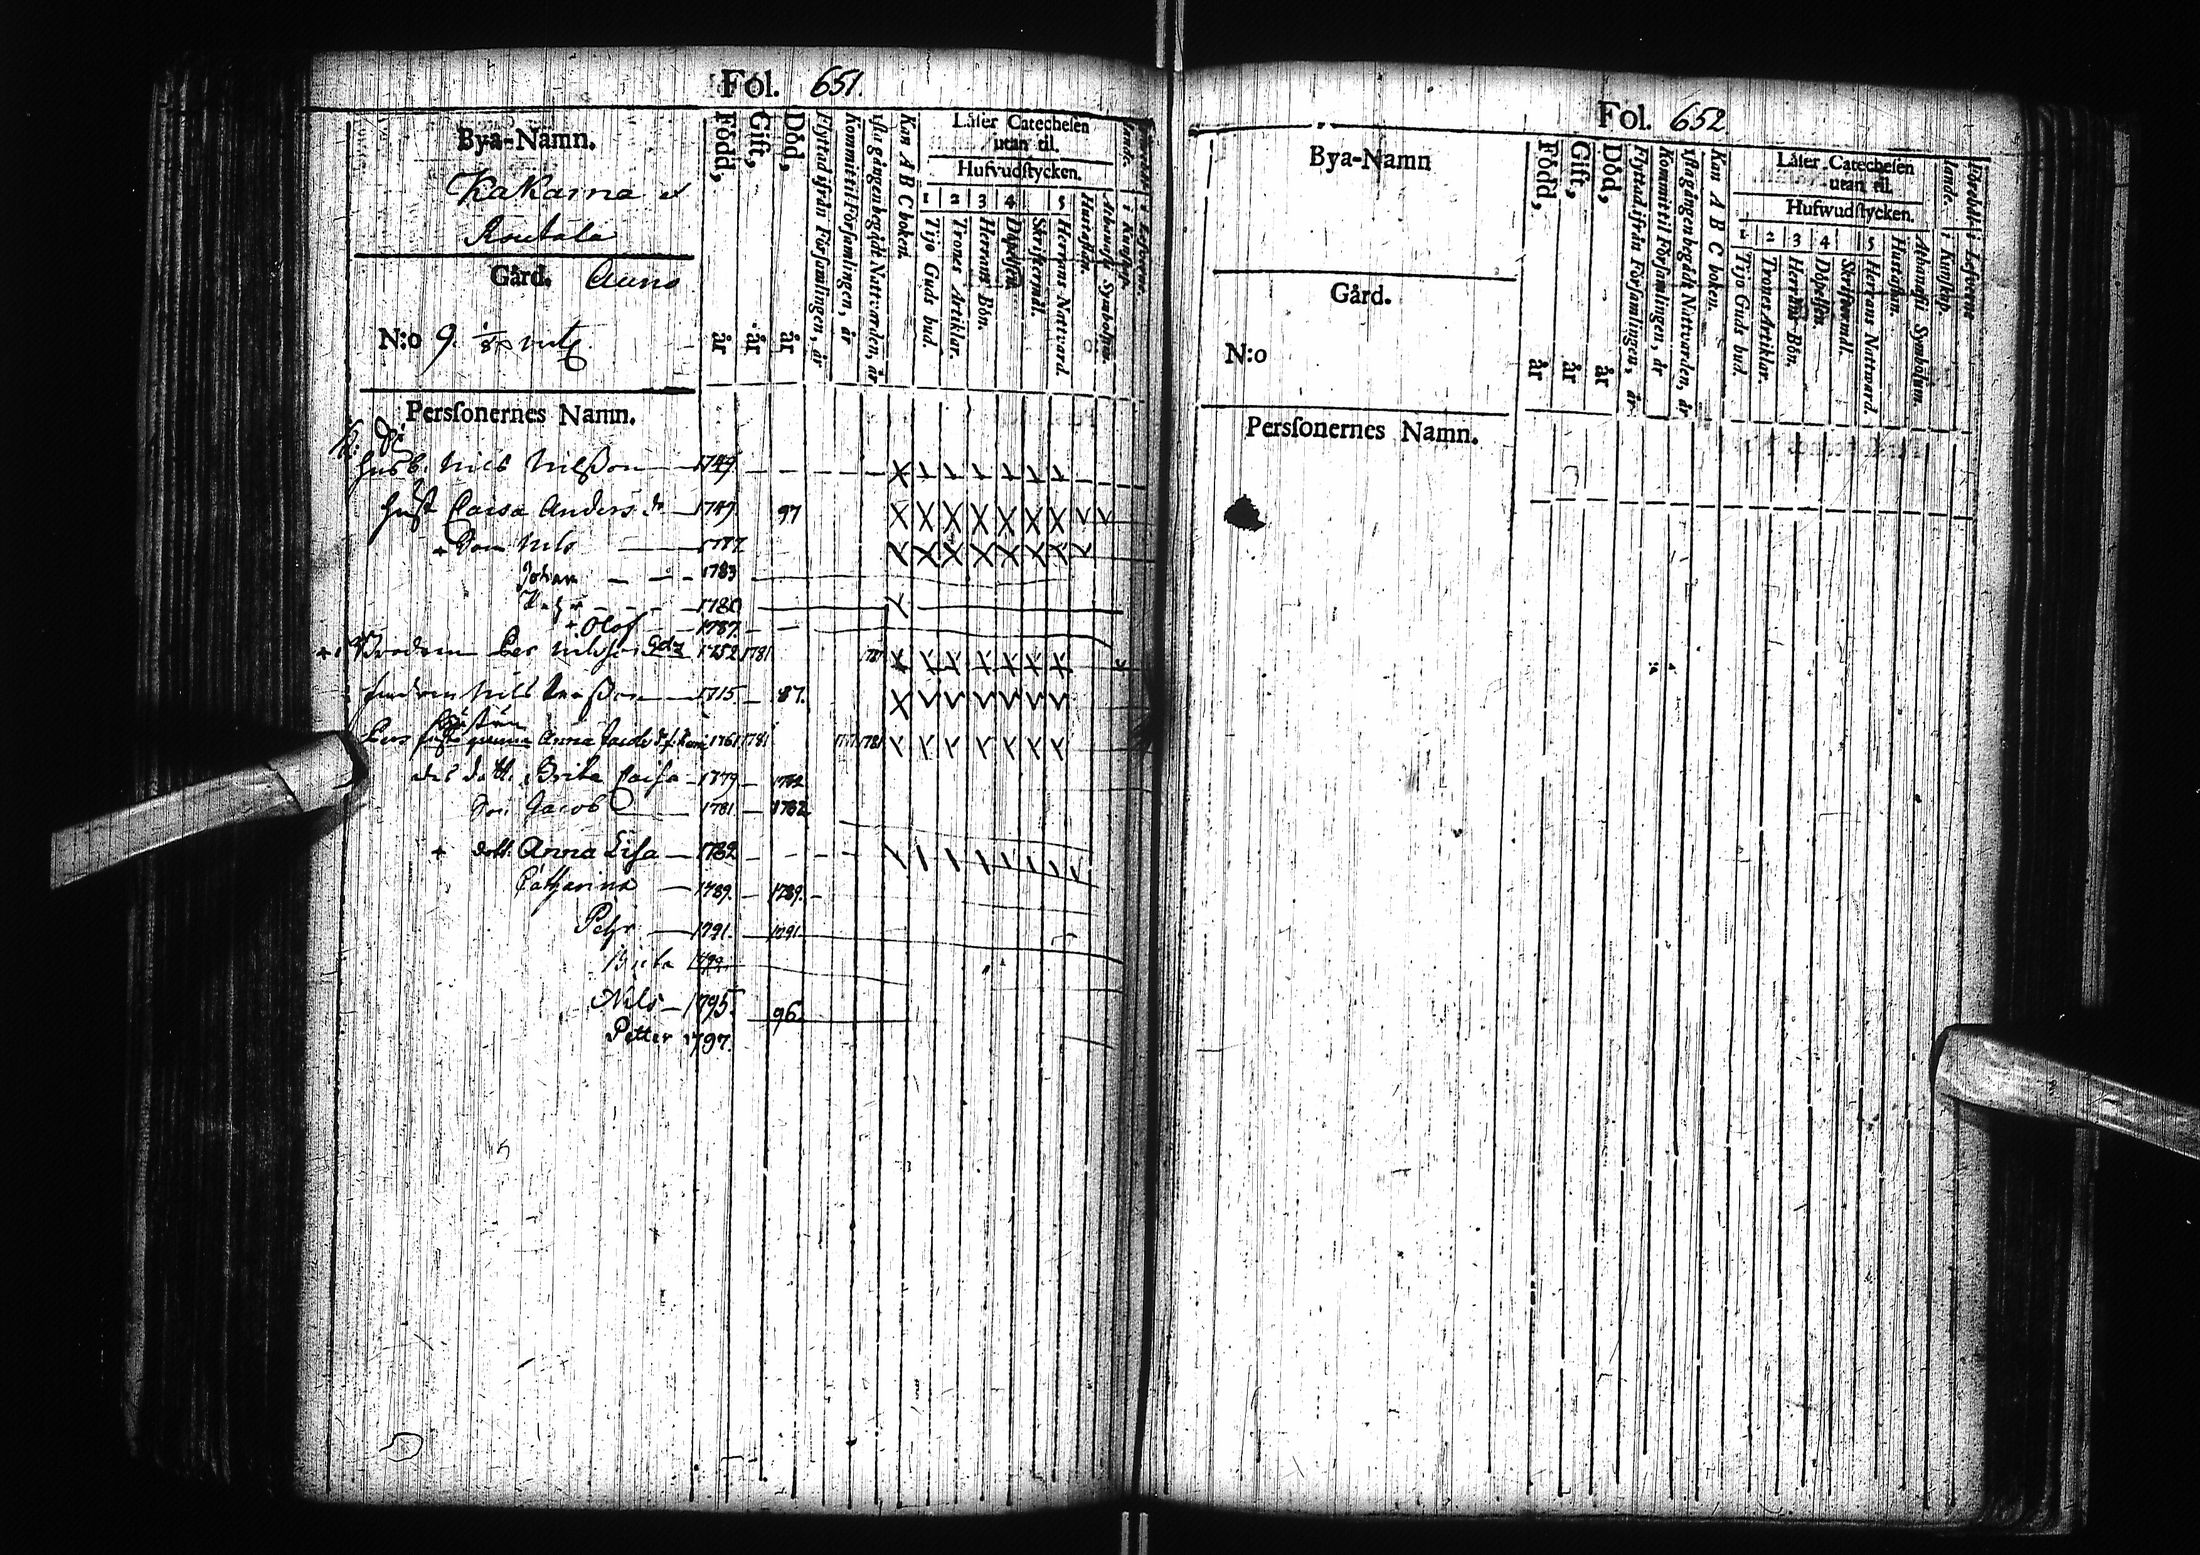 Fol. 651.
Bya-Namn.
Kakarna et
Routala
Gård. Auno
N:o 9.
Född, år
Gift, år
Död, år
Flyttad ifrån Församlingen, år
Kommit til Församlingen, år
1sta gången begådt Nattvarden, år
Kan A B C boken.
Läser Catechesen
utan til.
Hufvudstycken.
1 2 3 4 5
Tijo Guds bud.
Trones Artiklar.
Herrans Bön.
Döpelsen.
Skriftermål.
Herrans Nattvard.
Hustaflan.
Athanasii Symbolum.
Personernes Namn.
Husb. Nils Nilsson 1749.
Hust Caisa Anders dr 1749 97
+ Son Nils 1777.
Johan 1783
1780
+ Olof 1787.
Brodren Per Nilsson 1752 1781 787
Nils 1715 87.
Hustrun
Pers Anna Jacobs dr 1761 1781 1781
dott. Brita Caisa 1779
Son Jacob 1781 1782
+ dott. Anna Lisa 1782
Catharina 1789. 1789.
Pehr 1791. 1791.
Brita
Nils 1795. 96.
Petter 1797.
Fol. 652.
Bya-Namn
Gård.
N:o
Född, år
Gift, år
Död, år
Flyttad ifrån Församlingen, år
Kommit til Församlingen, år
1sta gången begådt Nattvarden, år
Kan A B C boken.
Läser Catechesen
utan til.
Hufwudstycken.
1 2 3 4 5
Tijo Guds bud.
Trones Artiklar.
Herrans Bön.
Döpelsen.
Skriftermål.
Herrans Nattward.
Hustaflan.
Athanasii Symbolum.
Personernes Namn.